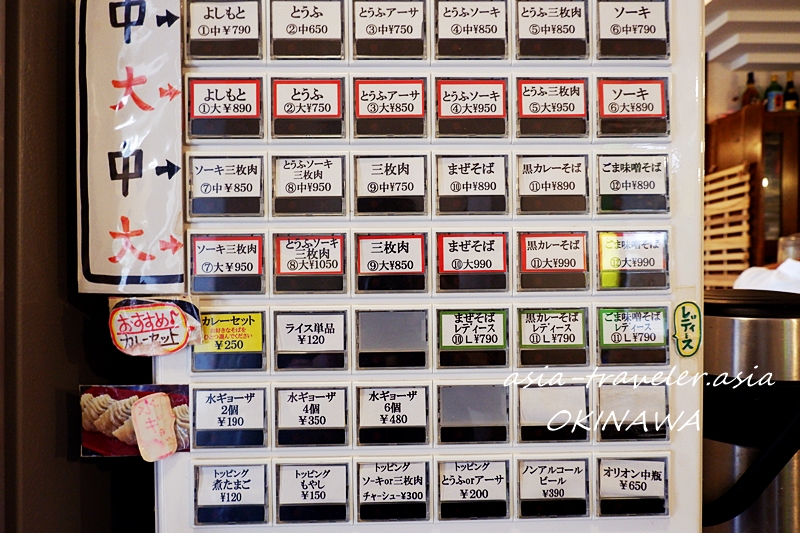 中
よしもと
①中¥790
とうふ
②中650
とうふアーサ
③中¥750
とうふソーキ
④中¥850
とうふ三枚肉
⑤中¥850
ソーキ
⑥中¥790
大
よしもと
①大¥890
とうふ
②大¥750
とうふアーサ
③大¥850
とうふソーキ
④大¥950
とうふ三枚肉
⑤大¥950
ソーキ
⑥大¥890
中
ソーキ三枚肉
⑦中¥850
とうふソーキ
三枚肉
⑧中¥950
三枚肉
⑨中¥750
まぜそば
⑩中¥890
黒カレーそば
⑪中¥890
ごま味噌そば
⑫中¥890
大
ソーキ三枚肉
⑦大¥950
とうふソーキ
三枚肉
⑧大¥1050
三枚肉
⑨大¥850
まぜそば
⑩大¥990
黒カレーそば
⑪大¥990
ごま味噌そば
⑫大¥990
おすすめ♪
カレーセット
カレーセット
お好きなそばを
ひとつ選んでください
¥250
ライス単品
¥120
まぜそば
レディース
⑩L¥790
黒カレーそば
レディース
⑪L¥790
ごま味噌そば
レディース
⑪L¥790
レディース
水ギョーザ
2個
¥190
水ギョーザ
4個
¥350
水ギョーザ
6個
¥480
asia-traveler.asia
OKINAWA
トッピング
煮たまご
¥120
トッピング
もやし
¥150
トッピング
ソーキor三枚肉
チャーシュー¥300
トッピング
とうふorアーサ
¥200
ノンアルコール
ビール
¥390
オリオン中瓶
¥650